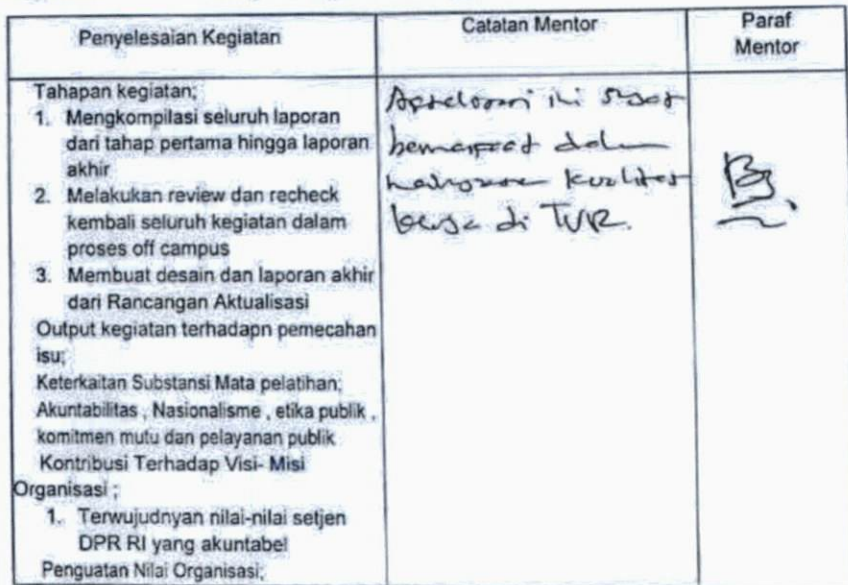 Penyelesaian Kegiatan
Catatan Mentor
Paraf
Mentor
Tahapan kegiatan;
1. Mengkompilasi seluruh laporan
dari tahap pertama hingga laporan
akhir
2. Melakukan review dan recheck
kembali seluruh kegiatan dalam
proses off campus
3. Membuat desain dan laporan akhir
dari Rancangan Aktualisasi
Output kegiatan terhadapn pemecahan
isu;
Keterkaitan Substansi Mata pelatihan;
Akuntabilitas , Nasionalisme , etika publik ,
komitmen mutu dan pelayanan publik
Kontribusi Terhadap Visi- Misi
Organisasi ;
1. Terwujudnyan nilai-nilai setjen
DPR RI yang akuntabel
Penguatan Nilai Organisasi;
ini
dalam
kualitas
di TVR.